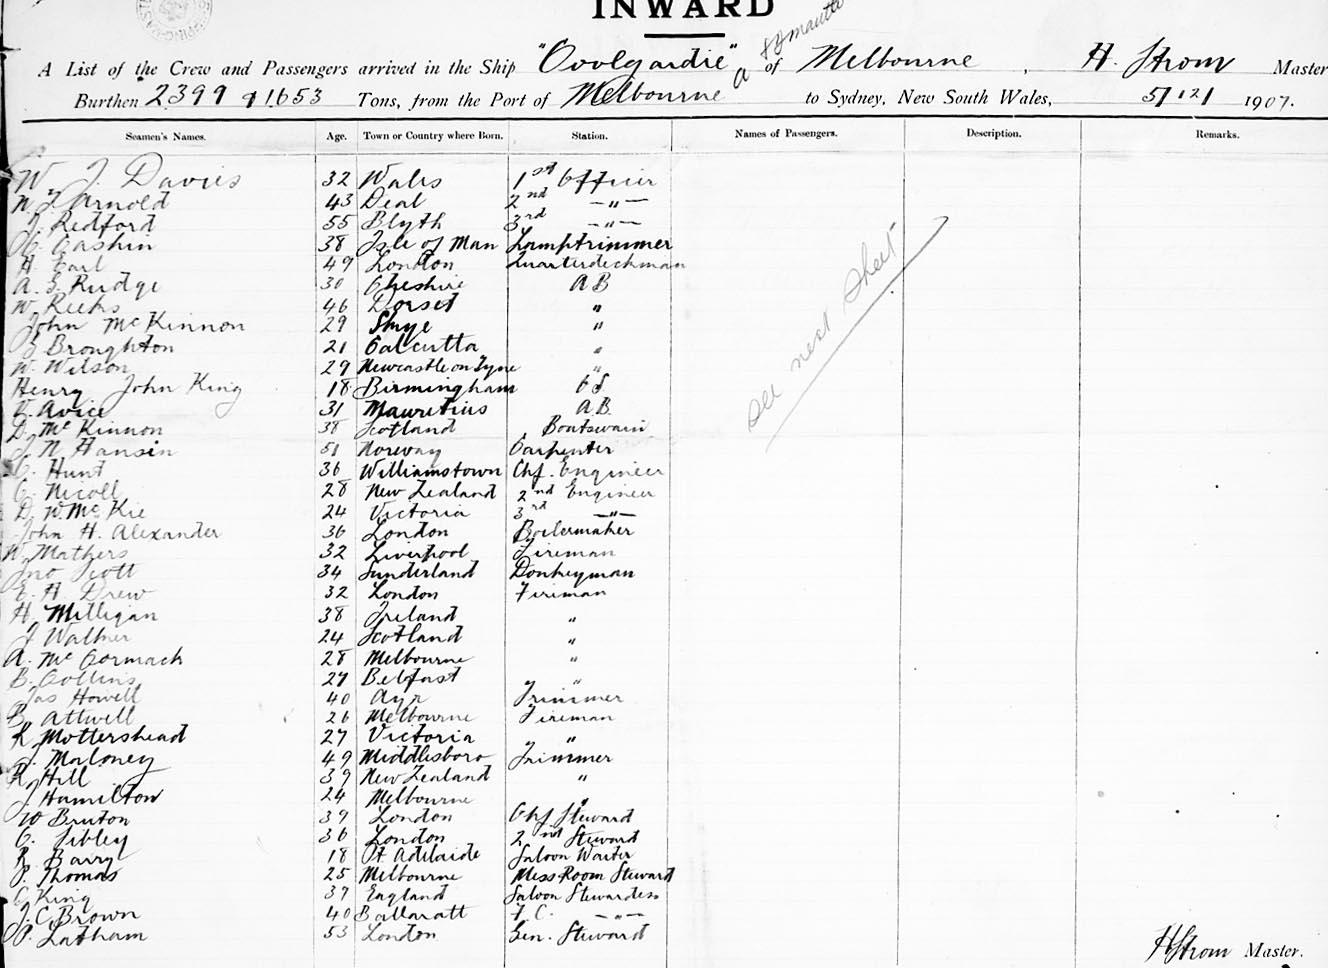 INWARD
A List of the Crew and Passengers arrived in the Ship "Coolgardie" a of Melbourne, H. Strom Master
Burthen 2399 & 1653 Tons, from the Port of Melbourne to Sydney, New South Wales, 5/12/ 1907.
Seamen's Names. Age. Town or Country where Born. Station. Names of Passengers. Description. Remarks.
W. J. Davies 32 Wales 1st Officer
Arnold 43 Deal 2nd —"—
J. Redford 55 Blyth 3rd —"—
Cashin 38 Isle of Man Lamptrimmer
H. Earl 49 London Quarterdeckman
A. S. Rudge 30 Cheshire A B
W. Reeks 46 Dorset "
John McKinnon 29 Skye "
Broughton 21 Calcutta "
W. Wilson 29 Newcastle on Tyne "
Henry John King 18 Birmingham O S
Avice 31 Mauritius A B
D. McKinnon 38 Scotland Boatswain
J. N. Hansen 51 Norway Carpenter
C. Hunt 36 Williamstown Chf. Engineer
C. Nicoll 28 New Zealand 2nd Engineer
D. W. McKie 24 Victoria 3rd —"—
John H. Alexander 36 London Boilermaker
W. Mathers 32 Liverpool Fireman
Jno Scott 34 Sunderland Donkeyman
E. H. Drew 32 London Fireman
H. Milligan 38 Ireland "
J. Walker 24 Scotland "
A. McCormack 28 Melbourne "
B. Collins 27 Belfast "
Jas Howell 40 Ayr Trimmer
B. Attwell 26 Melbourne Fireman
R. Mottershead 27 Victoria "
J. Maloney 49 Middlesboro Trimmer
R. Hill 39 New Zealand "
J. Hamilton 24 Melbourne "
W Bruton 39 London Chf Steward
C. Sibley 36 London 2nd Steward
R. Barry 18 Pt Adelaide Saloon Waiter
P. Thomas 25 Melbourne Mess Room Steward
C. King 37 England Saloon Stewardess
J. C. Brown 40 Ballaratt F. C. —"—
P. Latham 53 London Gen. Steward
see next sheet
H Strom Master.